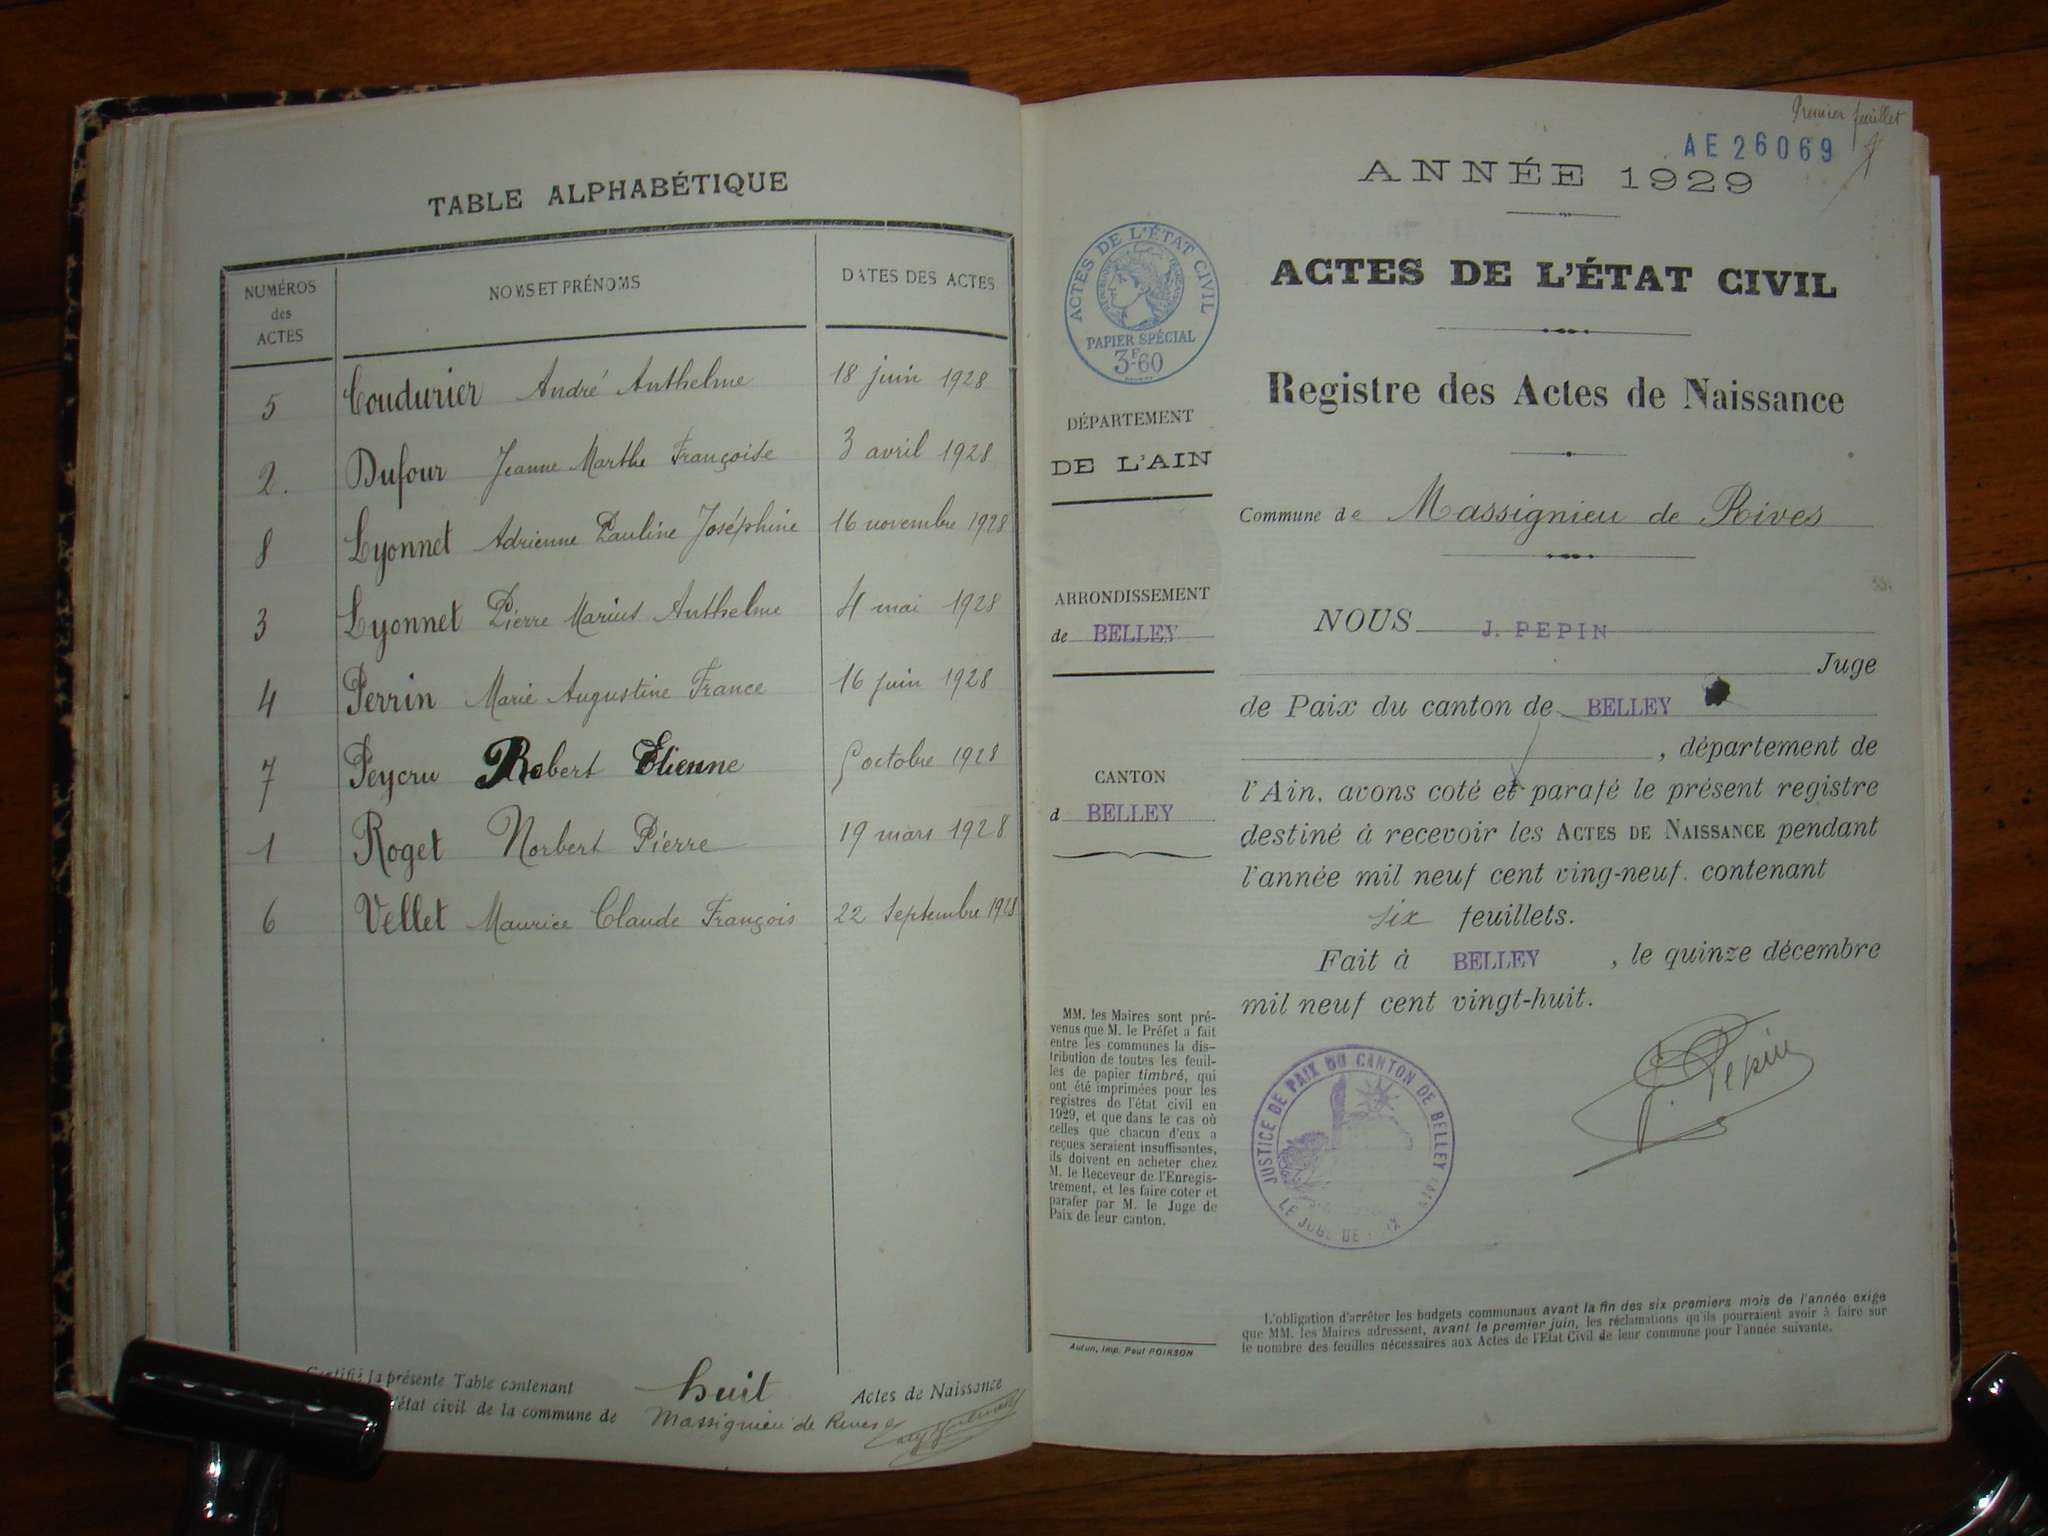 TABLE ALPHABÉTIQUE
NUMÉROS des ACTES | NOMS ET PRÉNOMS | DATES DES ACTES
5 Coudurier André Anthelme 18 juin 1928
2. Dufour Jeanne Marthe Françoise 3 avril 1928
8 Lyonnet Adrienne Pauline Joséphine 16 novembre 1928
3 Lyonnet Pierre Marius Anthelme 4 mai 1928
4 Perrin Marie Augustine France 16 juin 1928
7 Peycru Robert Etienne 5 octobre 1928
1 Roget Norbert Pierre 19 mars 1928
6 Vellet Maurice Claude François 22 Septembre 1928
Certifié la présente Table contenant huit Actes de Naissance
l'état civil de la commune de Massignieu de Rives
Premier feuillet
AE 26069
ANNÉE 1929
ACTES DE L'ÉTAT CIVIL
Registre des Actes de Naissance
Commune de Massignieu de Rives
ACTES DE L'ÉTAT CIVIL
RÉPUBLIQUE FRANÇAISE
PAPIER SPÉCIAL
3F.60
DÉPARTEMENT
DE L'AIN
ARRONDISSEMENT
de BELLEY
CANTON
d BELLEY
MM. les Maires sont pré-
venus que M. le Préfet a fait
entre les communes la dis-
tribution de toutes les feuil-
les de papier timbré, qui
ont été imprimées pour les
registres de l'état civil en
1929, et que dans le cas où
celles que chacun d'eux a
reçues seraient insuffisantes,
ils doivent en acheter chez
M. le Receveur de l'Enregis-
trement, et les faire coter et
parafer par M. le Juge de
Paix de leur canton.
Autun, imp. Paul POIRSON
NOUS J. PEPIN
Juge
de Paix du canton de BELLEY
, département de
l'Ain, avons coté et parafé le présent registre
destiné à recevoir les ACTES DE NAISSANCE pendant
l'année mil neuf cent ving-neuf. contenant
six feuillets.
Fait à BELLEY, le quinze décembre
mil neuf cent vingt-huit.
J. Pepin
JUSTICE DE PAIX DU CANTON DE BELLEY (AIN)
LE JUGE DE PAIX
L'obligation d'arrêter les budgets communaux avant la fin des six premiers mois de l'année exige
que MM. les Maires adressent, avant le premier juin, les réclamations qu'ils pourraient avoir à faire sur
le nombre des feuilles nécessaires aux Actes de l'Etat Civil de leur commune pour l'année suivante.